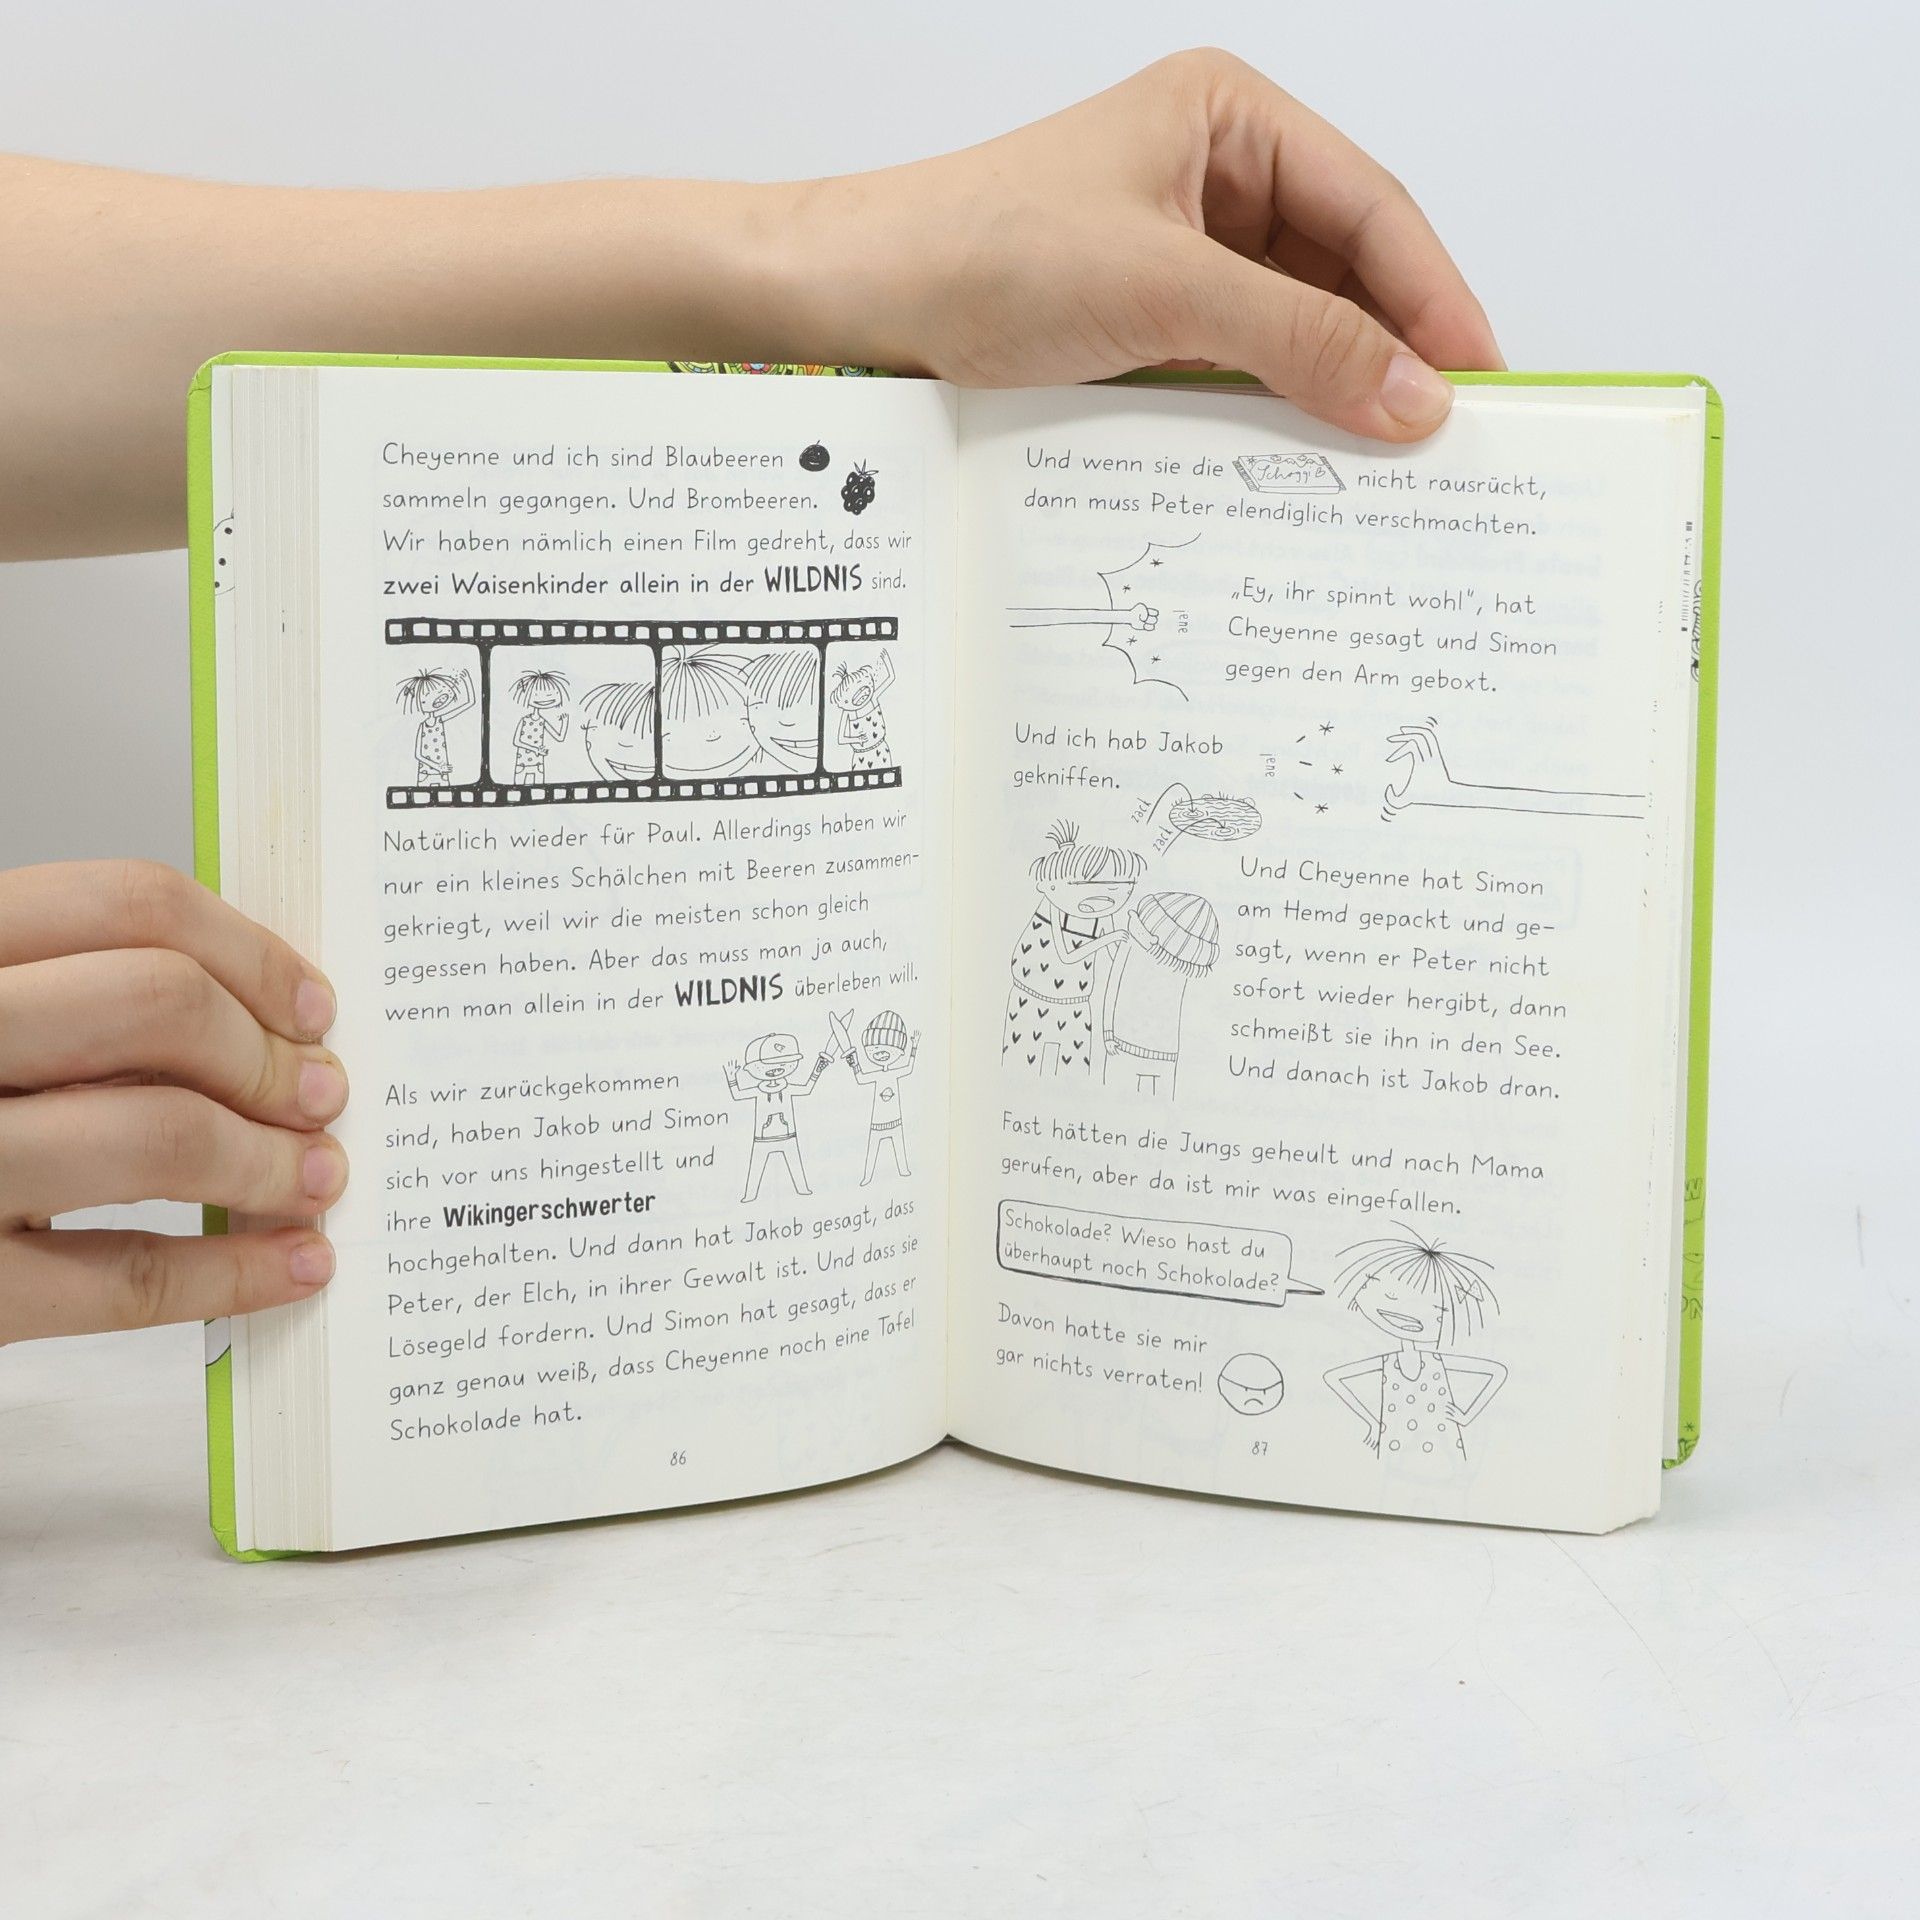 Cheyenne und ich sind Blaubeeren
sammeln gegangen. Und Brombeeren.
Wir haben nämlich einen Film gedreht, dass wir
zwei Waisenkinder allein in der WILDNIS sind.
Natürlich wieder für Paul. Allerdings haben wir
nur ein kleines Schälchen mit Beeren zusammen-
gekriegt, weil wir die meisten schon gleich
gegessen haben. Aber das muss man ja auch,
wenn man allein in der WILDNIS überleben will.
Als wir zurückgekommen
sind, haben Jakob und Simon
sich vor uns hingestellt und
ihre Wikingerschwerter
hochgehalten. Und dann hat Jakob gesagt, dass
Peter, der Elch, in ihrer Gewalt ist. Und dass sie
Lösegeld fordern. Und Simon hat gesagt, dass er
ganz genau weiß, dass Cheyenne noch eine Tafel
Schokolade hat.
86
Und wenn sie die Schoggi nicht rausrückt,
dann muss Peter elendiglich verschmachten.
„Ey, ihr spinnt wohl", hat
Cheyenne gesagt und Simon
gegen den Arm geboxt.
aua!
Und ich hab Jakob
gekniffen.
aua!
zack
zack
Und Cheyenne hat Simon
am Hemd gepackt und ge-
sagt, wenn er Peter nicht
sofort wieder hergibt, dann
schmeißt sie ihn in den See.
Und danach ist Jakob dran.
Fast hätten die Jungs geheult und nach Mama
gerufen, aber da ist mir was eingefallen.
Schokolade? Wieso hast du
überhaupt noch Schokolade?
Davon hatte sie mir
gar nichts verraten!
87